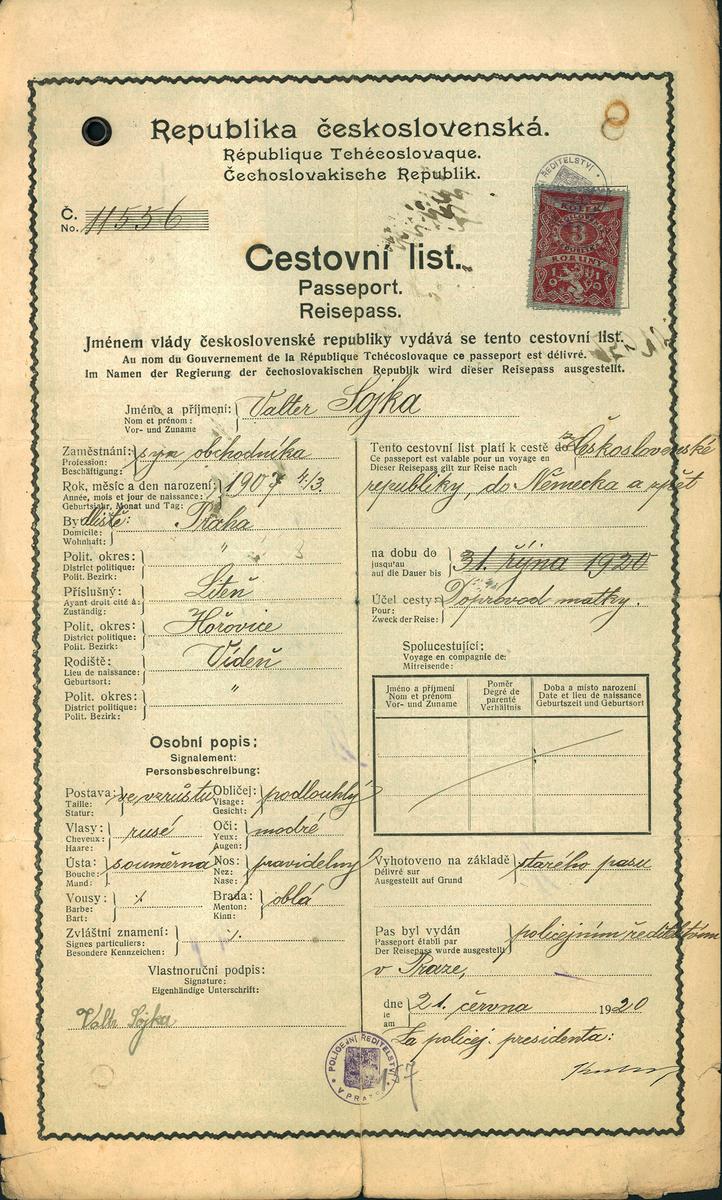 Republika československá.
République Tchécoslovaque.
Čechoslovakische Republik.
Č.
No. 11556
ŘEDITELSTVÍ
KOLEK
3
KORUNY
1919
Cestovní list.
Passeport.
Reisepass.
Jménem vlády československé republiky vydává se tento cestovní list.
Au nom du Gouvernement de la République Tchécoslovaque ce passeport est délivré.
Im Namen der Regierung der čechoslovakischen Republik wird dieser Reisepass ausgestellt.
Jméno a příjmení: Valter Sojka
Nom et prénom:
Vor- und Zuname
Zaměstnání: syn obchodníka
Profession:
Beschäftigung:
Rok, měsíc a den narození: 1907 4/3.
Année, mois et jour de naissance:
Geburtsjahr, Monat und Tag:
Bydliště: Praha
Domicile:
Wohnhaft:
Polit. okres: "
District politique:
Polit. Bezirk:
Příslušný: Liteň
Ayant droit cité à:
Zuständig:
Polit. okres: Hořovice
District politique:
Polit. Bezirk:
Rodiště: Vídeň
Lieu de naissance:
Geburtsort:
Polit. okres: "
District politique:
Polit. Bezirk:
Osobní popis:
Signalement:
Personsbeschreibung:
Postava: ve vzrůstu Obličej: podlouhlý
Taille: Visage:
Statur: Gesicht:
Vlasy: rusé Oči: modré
Cheveux: Yeux:
Haare: Augen:
Ústa: souměrna Nos: pravidelný
Bouche: Nez:
Mund: Nase:
Vousy: ·/. Brada: oblá
Barbe: Menton:
Bart: Kinn:
Zvláštní znamení: ·/.
Signes particuliers:
Besondere Kennzeichen:
Vlastnoruční podpis:
Signature:
Eigenhändige Unterschrift:
Valtr Sojka
Tento cestovní list platí k cestě do Československé
Ce passeport est valable pour un voyage en
Dieser Reisepass gilt zur Reise nach
republiky, do Německa a zpět
na dobu do 31. října 1920
jusqu'au
auf die Dauer bis
Účel cesty: Doprovod matky.
Pour:
Zweck der Reise:
Spolucestující:
Voyage en compagnie de:
Mitreisende:
Jméno a příjmení Poměr Doba a místo narození
Nom et prénom Degré de parenté Date et lieu de naissance
Vor- und Zuname Verhältnis Geburtszeit und Geburtsort
Vyhotoveno na základě starého pasu
Délivré sur
Ausgestellt auf Grund
Pas byl vydán policejním ředitelstvím
Passeport établi par
Der Reisepass wurde ausgestellt
v Praze,
dne 21. června 1920
le
am
Za policej. presidenta:
POLICEJNÍ ŘEDITELSTVÍ
V PRAZE